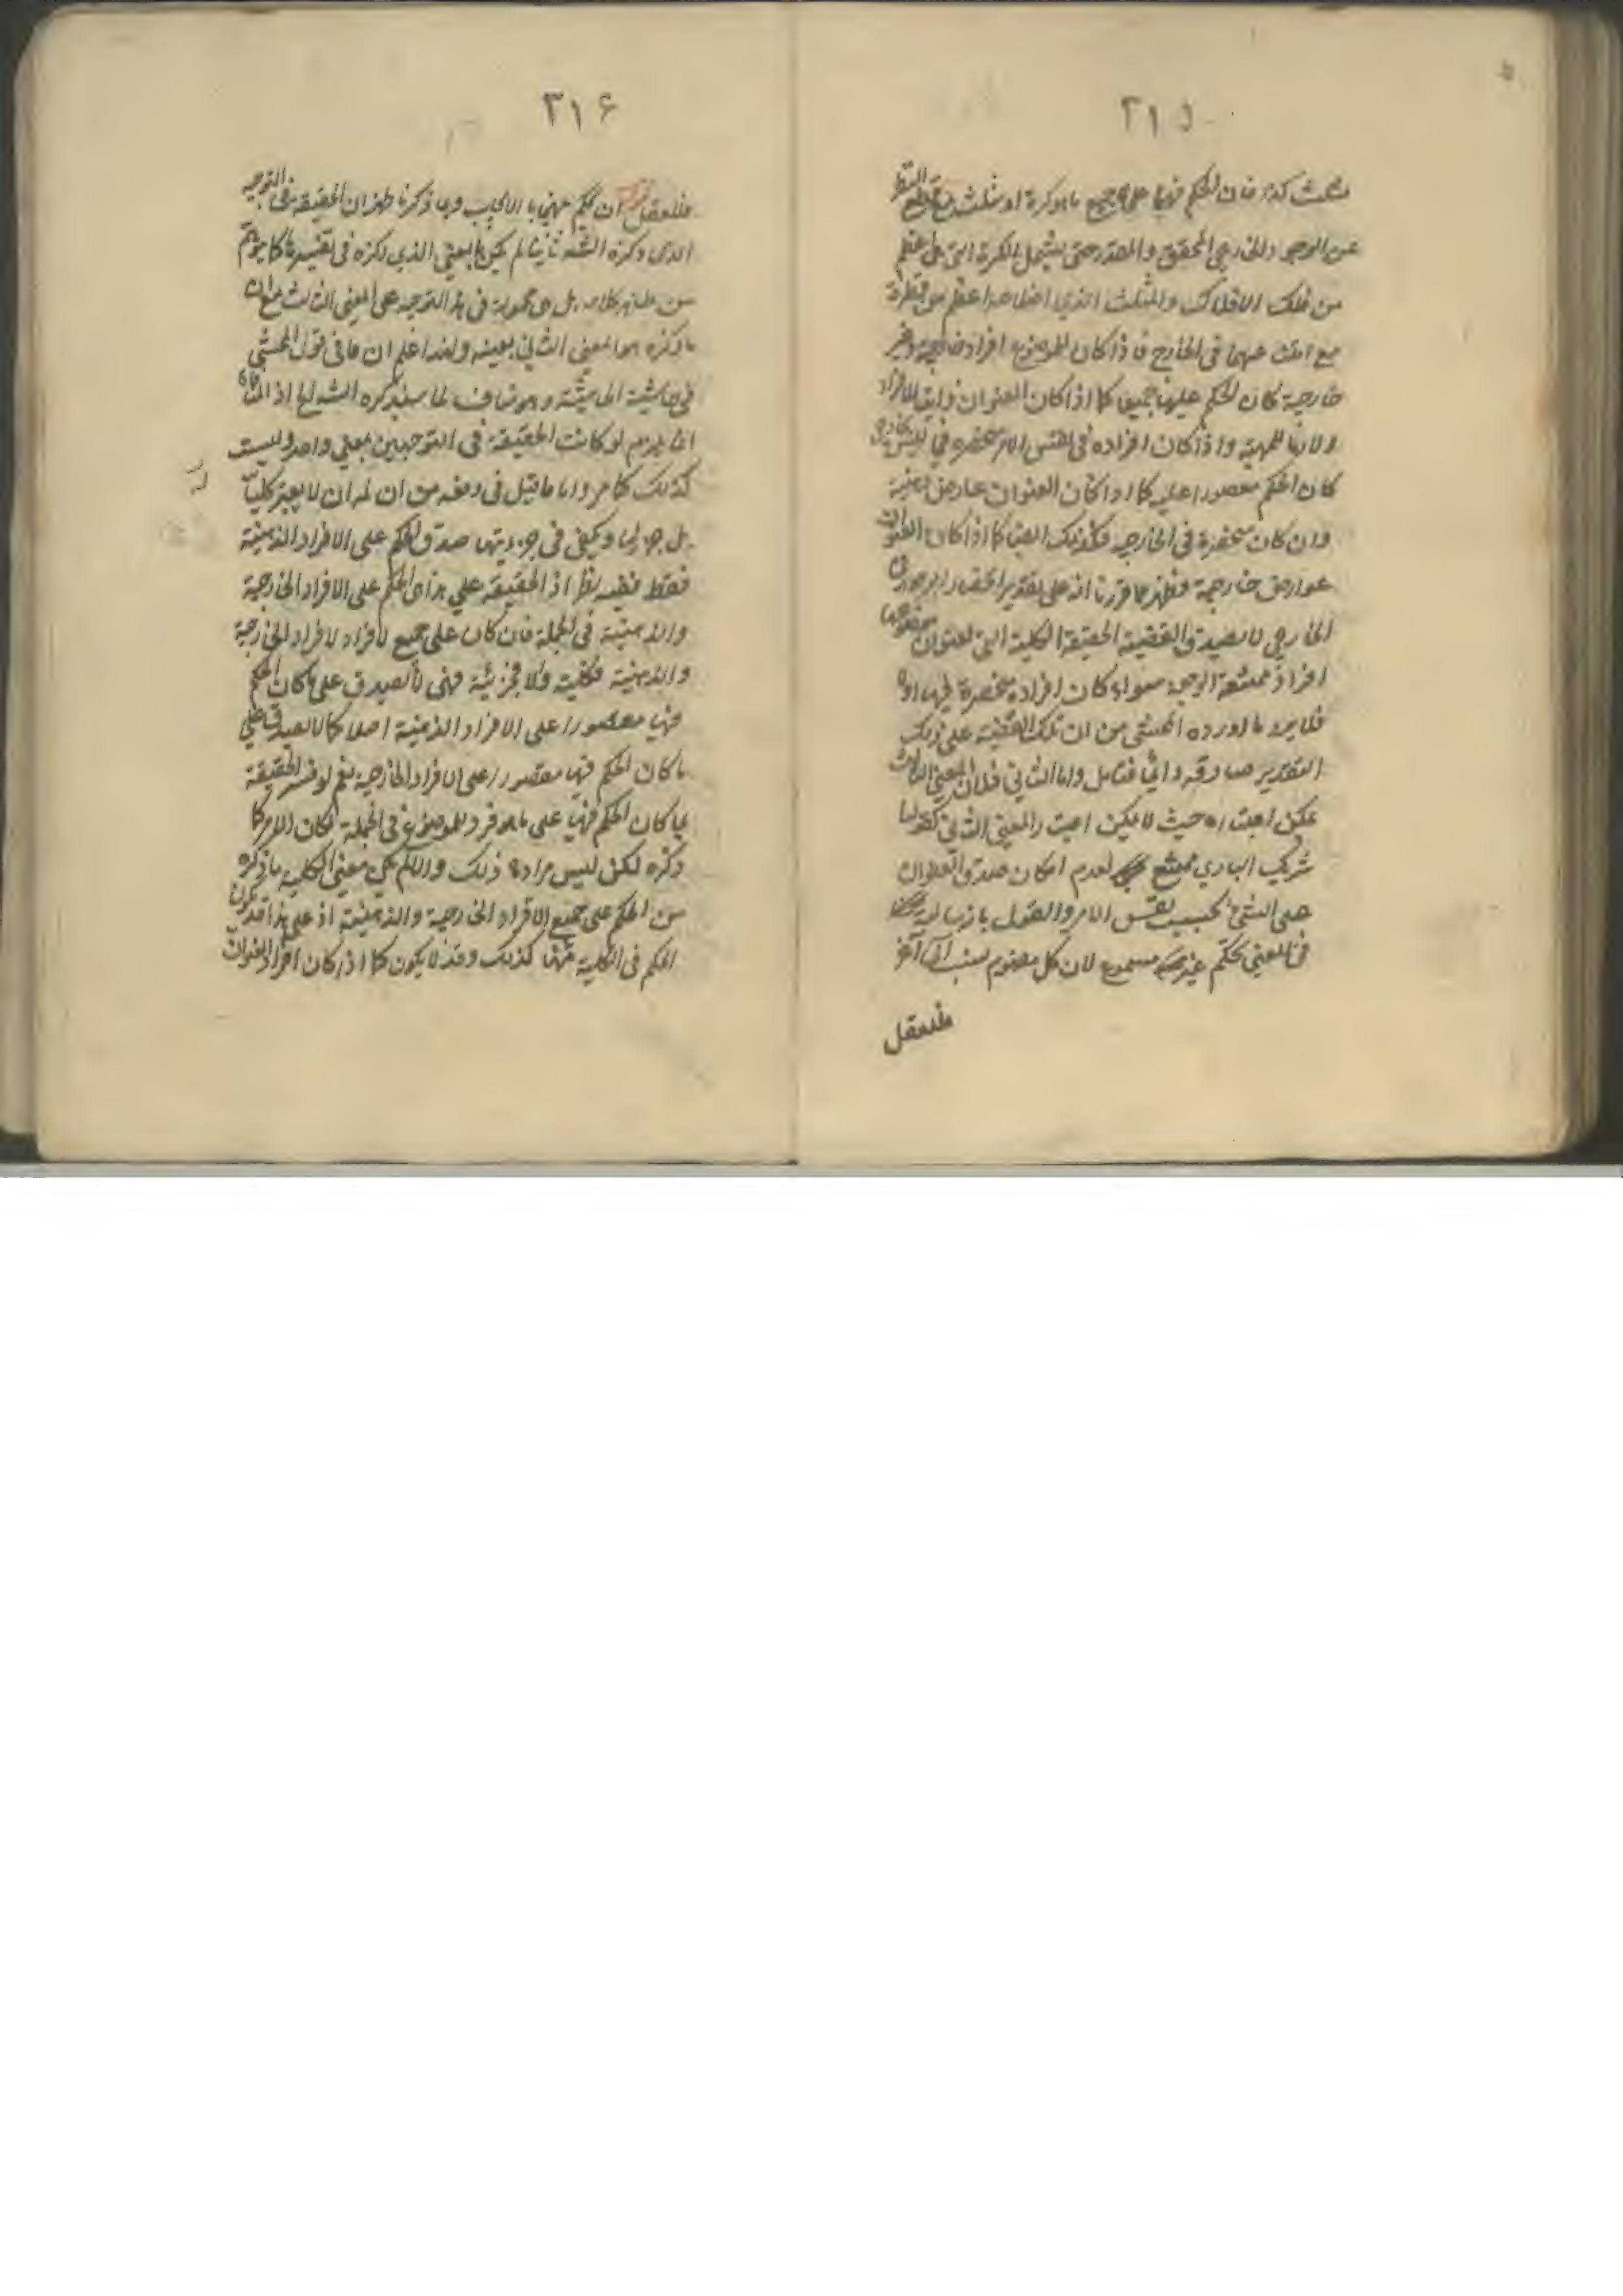 ٣١٥
مثلث كذا فان الحكم فيها على جميع ما هو كرة او مثلث مع قطع النظر
عن الوجود الخارجي المحقق والمقدر حتى يشمل الكرة التي هي اعظم
من فلك الافلاك والمثلث الذي اضلاعه اعظم من قطره
مع امتناعهما في الخارج فاذا كان للموضوع افراد خارجية وغير
خارجية كان الحكم عليها جميعا كما اذا كان العنوان ذاتيا للافراد
او لازما للمهية واذا كان افراده في نفس الامر منحصرة في
كان الحكم مقصورا عليه كما اذا كان العنوان عارض ذهنية
وان كان منحصرة في الخارجية فكذلك ايضا كما اذا كان العنوان
عوارض خارجية فظهر مما قررنا انه على تقدير
الخارجي لا تصدق القضية الحقيقة الكلية التي لعنوان موضوعها
افراد ممتنعة الوجود سواء كان افراده منحصرة فيها او لا
فلا يرد ما اورده المحشي من ان تلك القضية على ذلك
التقدير صادقة دائما فتامل واما الثاني فلان المعنى الثالث
يمكن اعتباره حيث لا يمكن اعتبار المعنى الثاني كقولنا
شريك الباري ممتنع لعدم امكان صدق العنوان
على الشيء بحسب نفس الامر والقول بان
في المعنى تحكم غير مسموع لان كل مفهوم نسب الى آخر
فللعقل
٣١٦
فللعقل ان يحكم بينهما بالايجاب وبما ذكرنا ظهر ان الحقيقة في التوجيه
الذي ذكره الشه ثانيا لم يكن بالمعنى الذي ذكره في تفسيرها كما يوهم
من ظاهر كلامه بل هي محمولة في هذا التوجيه على المعنى الثالث مع ان
ما ذكره هو المعنى الثاني بعينه ولهذا اعلم ان ما في قول المحشي
في حاشية الحاشية وهو مناف لما سيذكره الشه لها اذ المنافاة
انما يلزم لو كانت الحقيقة في التوجيهين بمعنى واحد وليست
كذلك كما مر واما ما قيل في دفعه من ان له ان لا يعتبر كليتها
بل جزئيتها ويكفي في جزئيتها صدق الحكم على الافراد الذهنية
فقط ففيه نظر اذ الحقيقة على هذا هي الحكم على الافراد الخارجية
والذهنية في الجملة فان كان على جميع الافراد الافراد الخارجية
والذهنية فكلية والا فجزئية فهي لا تصدق على ما كان الحكم
فيها مقصورا على الافراد الذهنية اصلا كما لا تصدق على
ما كان الحكم فيها مقصورا على الافراد الخارجية نعم لو فسر الحقيقة
بما كان الحكم فيها على ما هو فرد للموضوع في الجملة لكان الامر كما
ذكره لكن ليس مراده ذلك والا لم يكن معنى الكلية ما ذكره
من الحكم على جميع الافراد الخارجية والذهنية اذ على هذا قد يكون
الحكم في الكلية منها كذلك وقد لا يكون كما اذا كان افراد العنوان